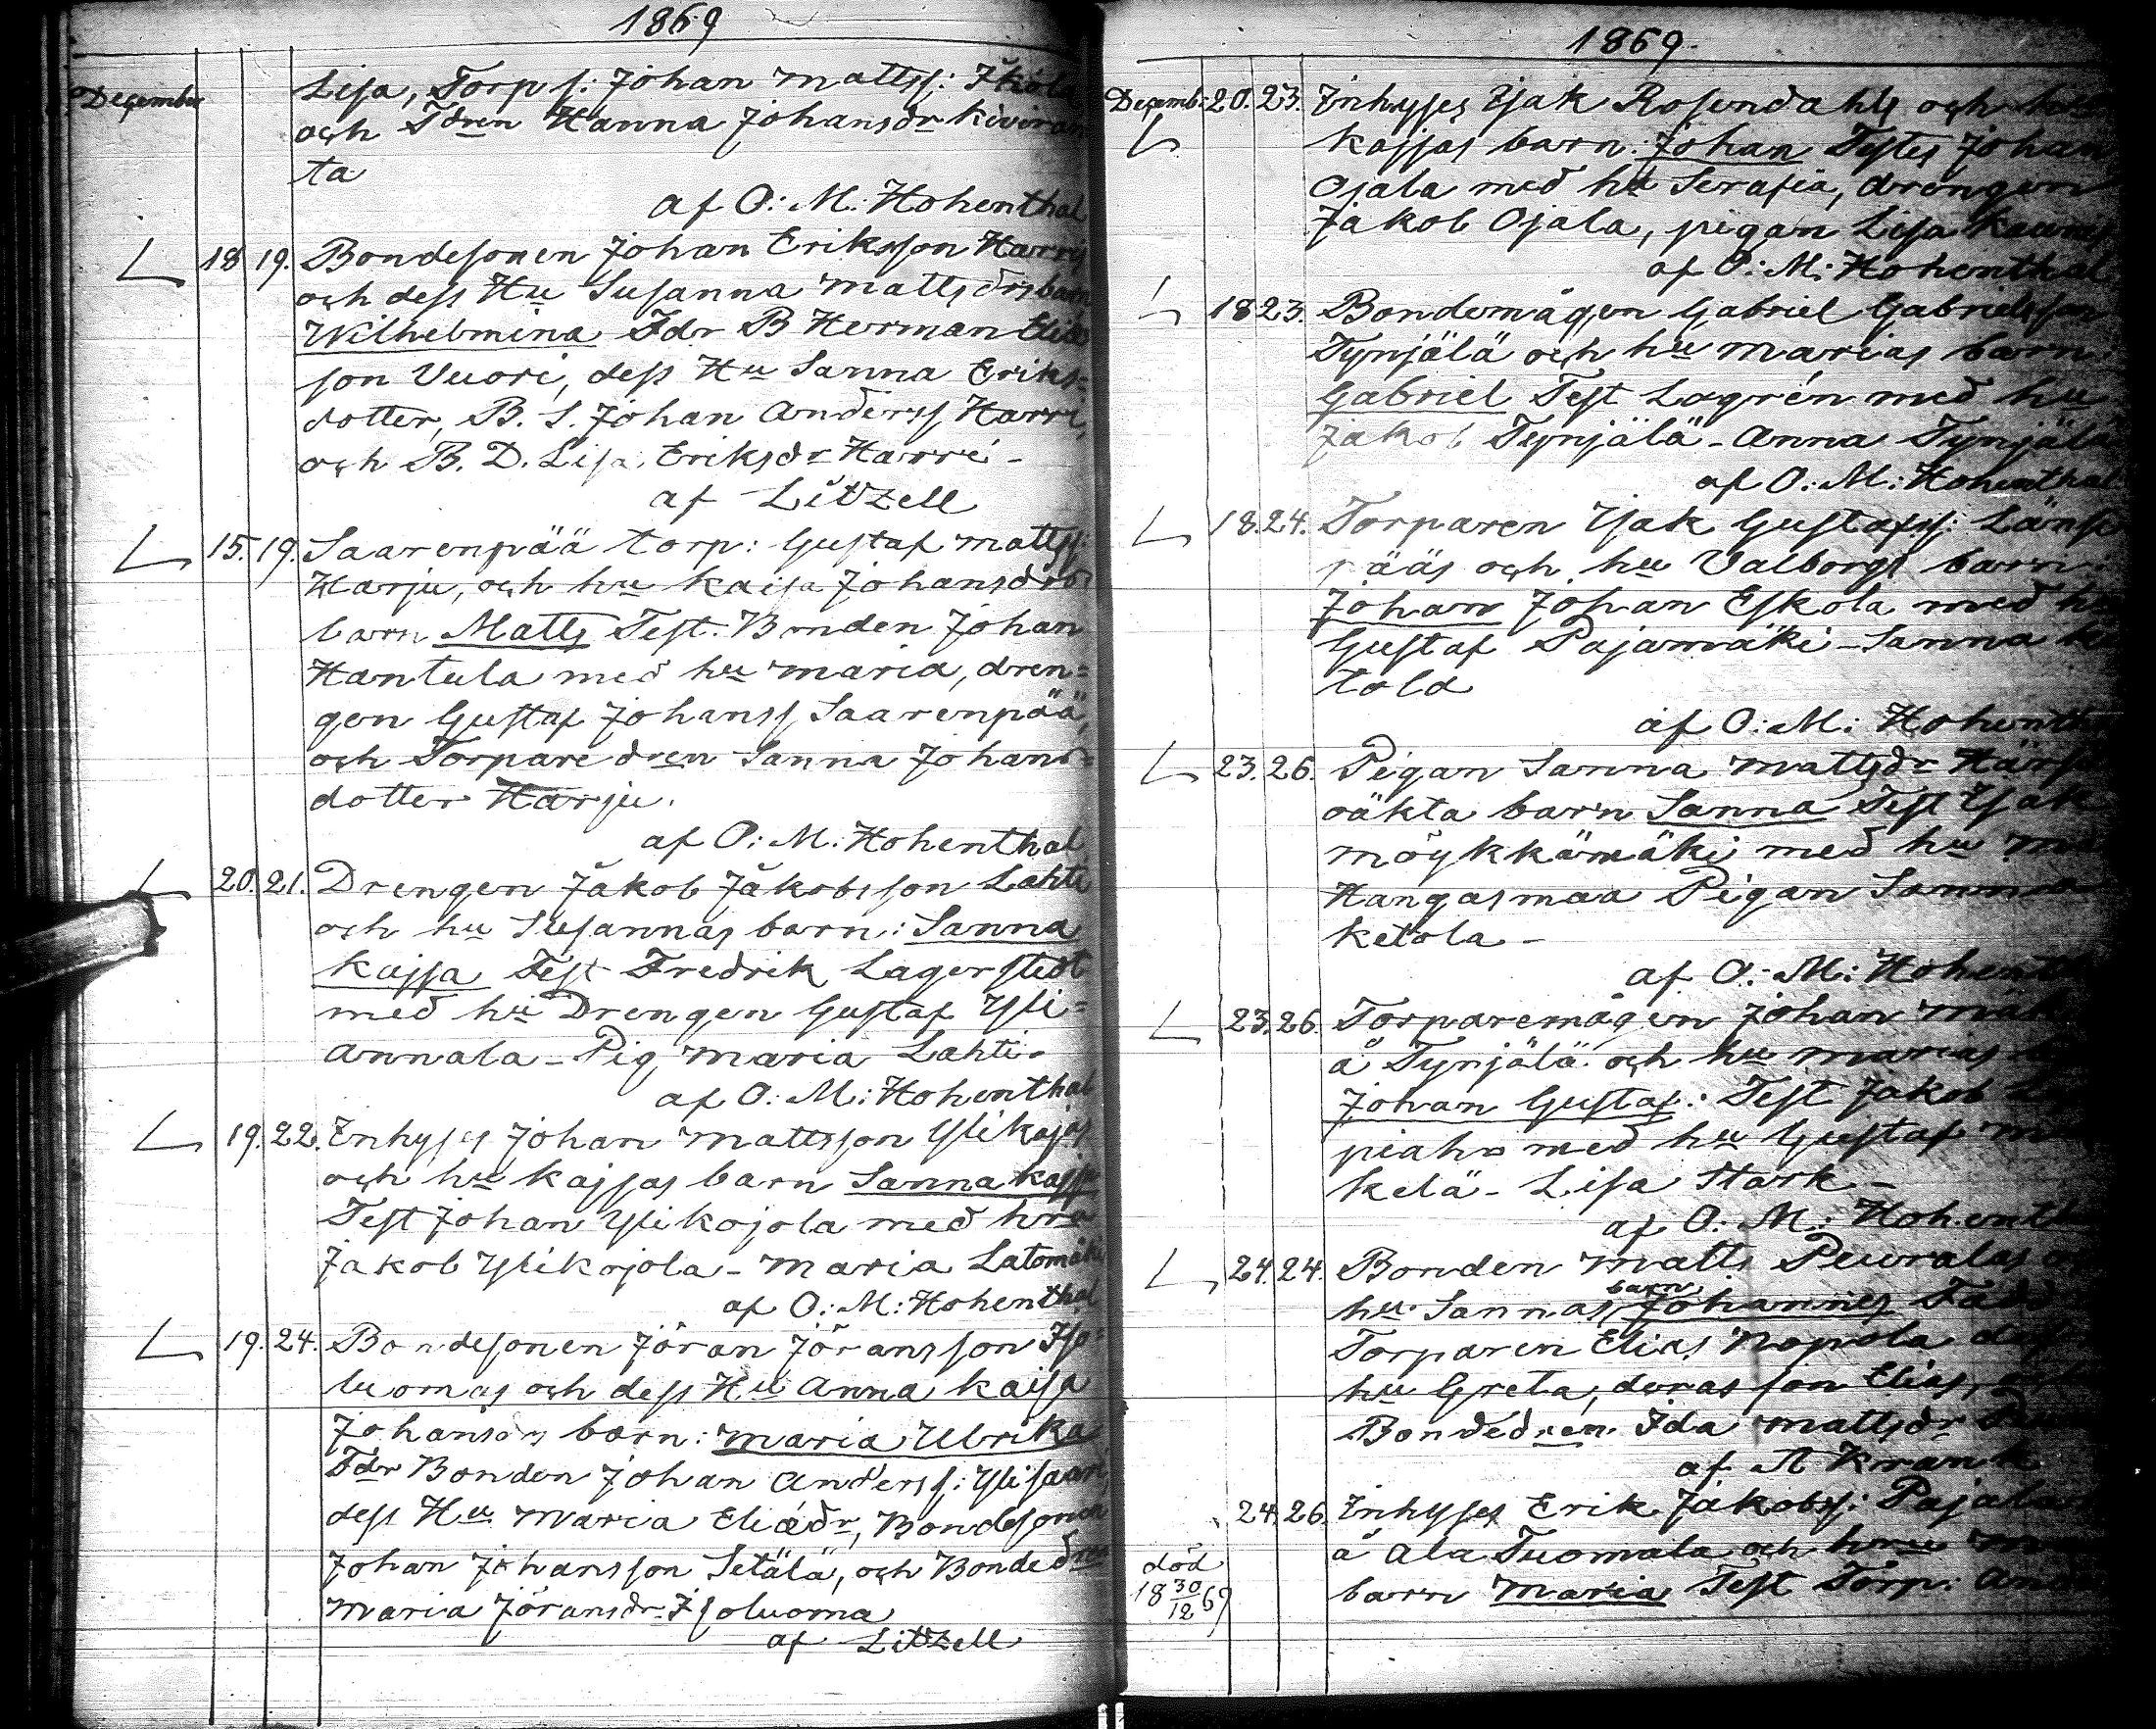 1869
December Lisa, Torp s: Johan Mattss: Iköla
och Tdren Hanna Johansdr Kiviran
ta
af O: M: Hohenthal
18 19. Bondesonen Johan Eriksson Harris
och dess Hu Susanna Mattsdrs barn
Wilhelmina Fdr B Herman Elias
son Vuori, dess Hu Sanna Eriks=
dotter, B. S. Johan Anderss Harri,
och B. D. Lisa Eriksdr Harri -
af Litzell
15. 19. Saarenpää torp: Gustaf Mattss:
Harju, och hu Kaisa Johansdrs
barn Matts Test. Bonden Johan
Hantula med hu Maria, dren=
gen Gustaf Johanss Saarenpää,
och Torpare dren Sanna Johans=
dotter Harju.
af O: M: Hohenthal
20. 21. Drengen Jakob Jakobsson Lahti
och hu Susannas barn: Sanna
Kajsa Test Fredrik Lagerstedt
med hu Drengen Gustaf Yli=
Annala - Pig Maria Lahti -
af O: M: Hohenthal
19. 22. Inhyses Johan Mattsson Ylikojas
och hu Kajsas barn Sanna Kajsa
Test Johan Ylikojola med hra
Jakob Ylikojola - Maria Latomäki
af O: M: Hohenthal
19. 24. Bondesonen Jöran Göransson Iso=
luomas och dess Hu Anna Kaisa
Johansdrs barn: Maria Ulrika
Fdr Bonden Johan Anderss: Ylisaari,
dess Hu Maria Eliædr, Bondesonen
Johan Johansson Setälä, och Bondedren
Maria Göransdr Isoluoma
af Litzell
1869.
Decemb. 20. 23. Inhyses Isak Rosendahls och
Kajsas barn: Johan Testes Johan
Ojala med hu Serafia, drengen
Jakob Ojala, pigan Lisa
af O: M: Hohenthal
18 23. Bondemågen Gabriel Gabrielsson
Tynjälä och hu Marias barn
Gabriel Test Lagrén med hu
Jakob Tynjälä - Anna Tynjälä
af O: M: Hohenthal
18. 24. Torparen Isak Gustafss: Länse
pääs och hu Valborgs barn:
Johan Johan Eskola med hu
Gustaf Pajamäki - Sanna Ke
tola
af O: M: Hohenth
23. 26. Pigan Sanna Mattsdr
oäkta barn Sanna Test Isak
Möykkämäki med hu
Hangasmaa Pigan Sanna
Ketola -
af O: M: Hohenth
23. 26. Torparemågen Johan
å Tynjälä och hu Marias
Johan Gustaf: Test Jakob
piaho med hu Gustaf
kelä - Lisa Stark -
af O: M: Hohenth
24. 24. Bonden Matts Peuralas
barn
hu Sannas Johannes Fadd
Torparen Elias Nopola
hu Greta, deras son Elias,
Bondedren Ida Mattsdr
af A Krank
24. 26. Inhyses Erik Jakobss: Pajala
å Ala Tuomala och hu
barn Maria Test Torp:
död
18 30/12 69